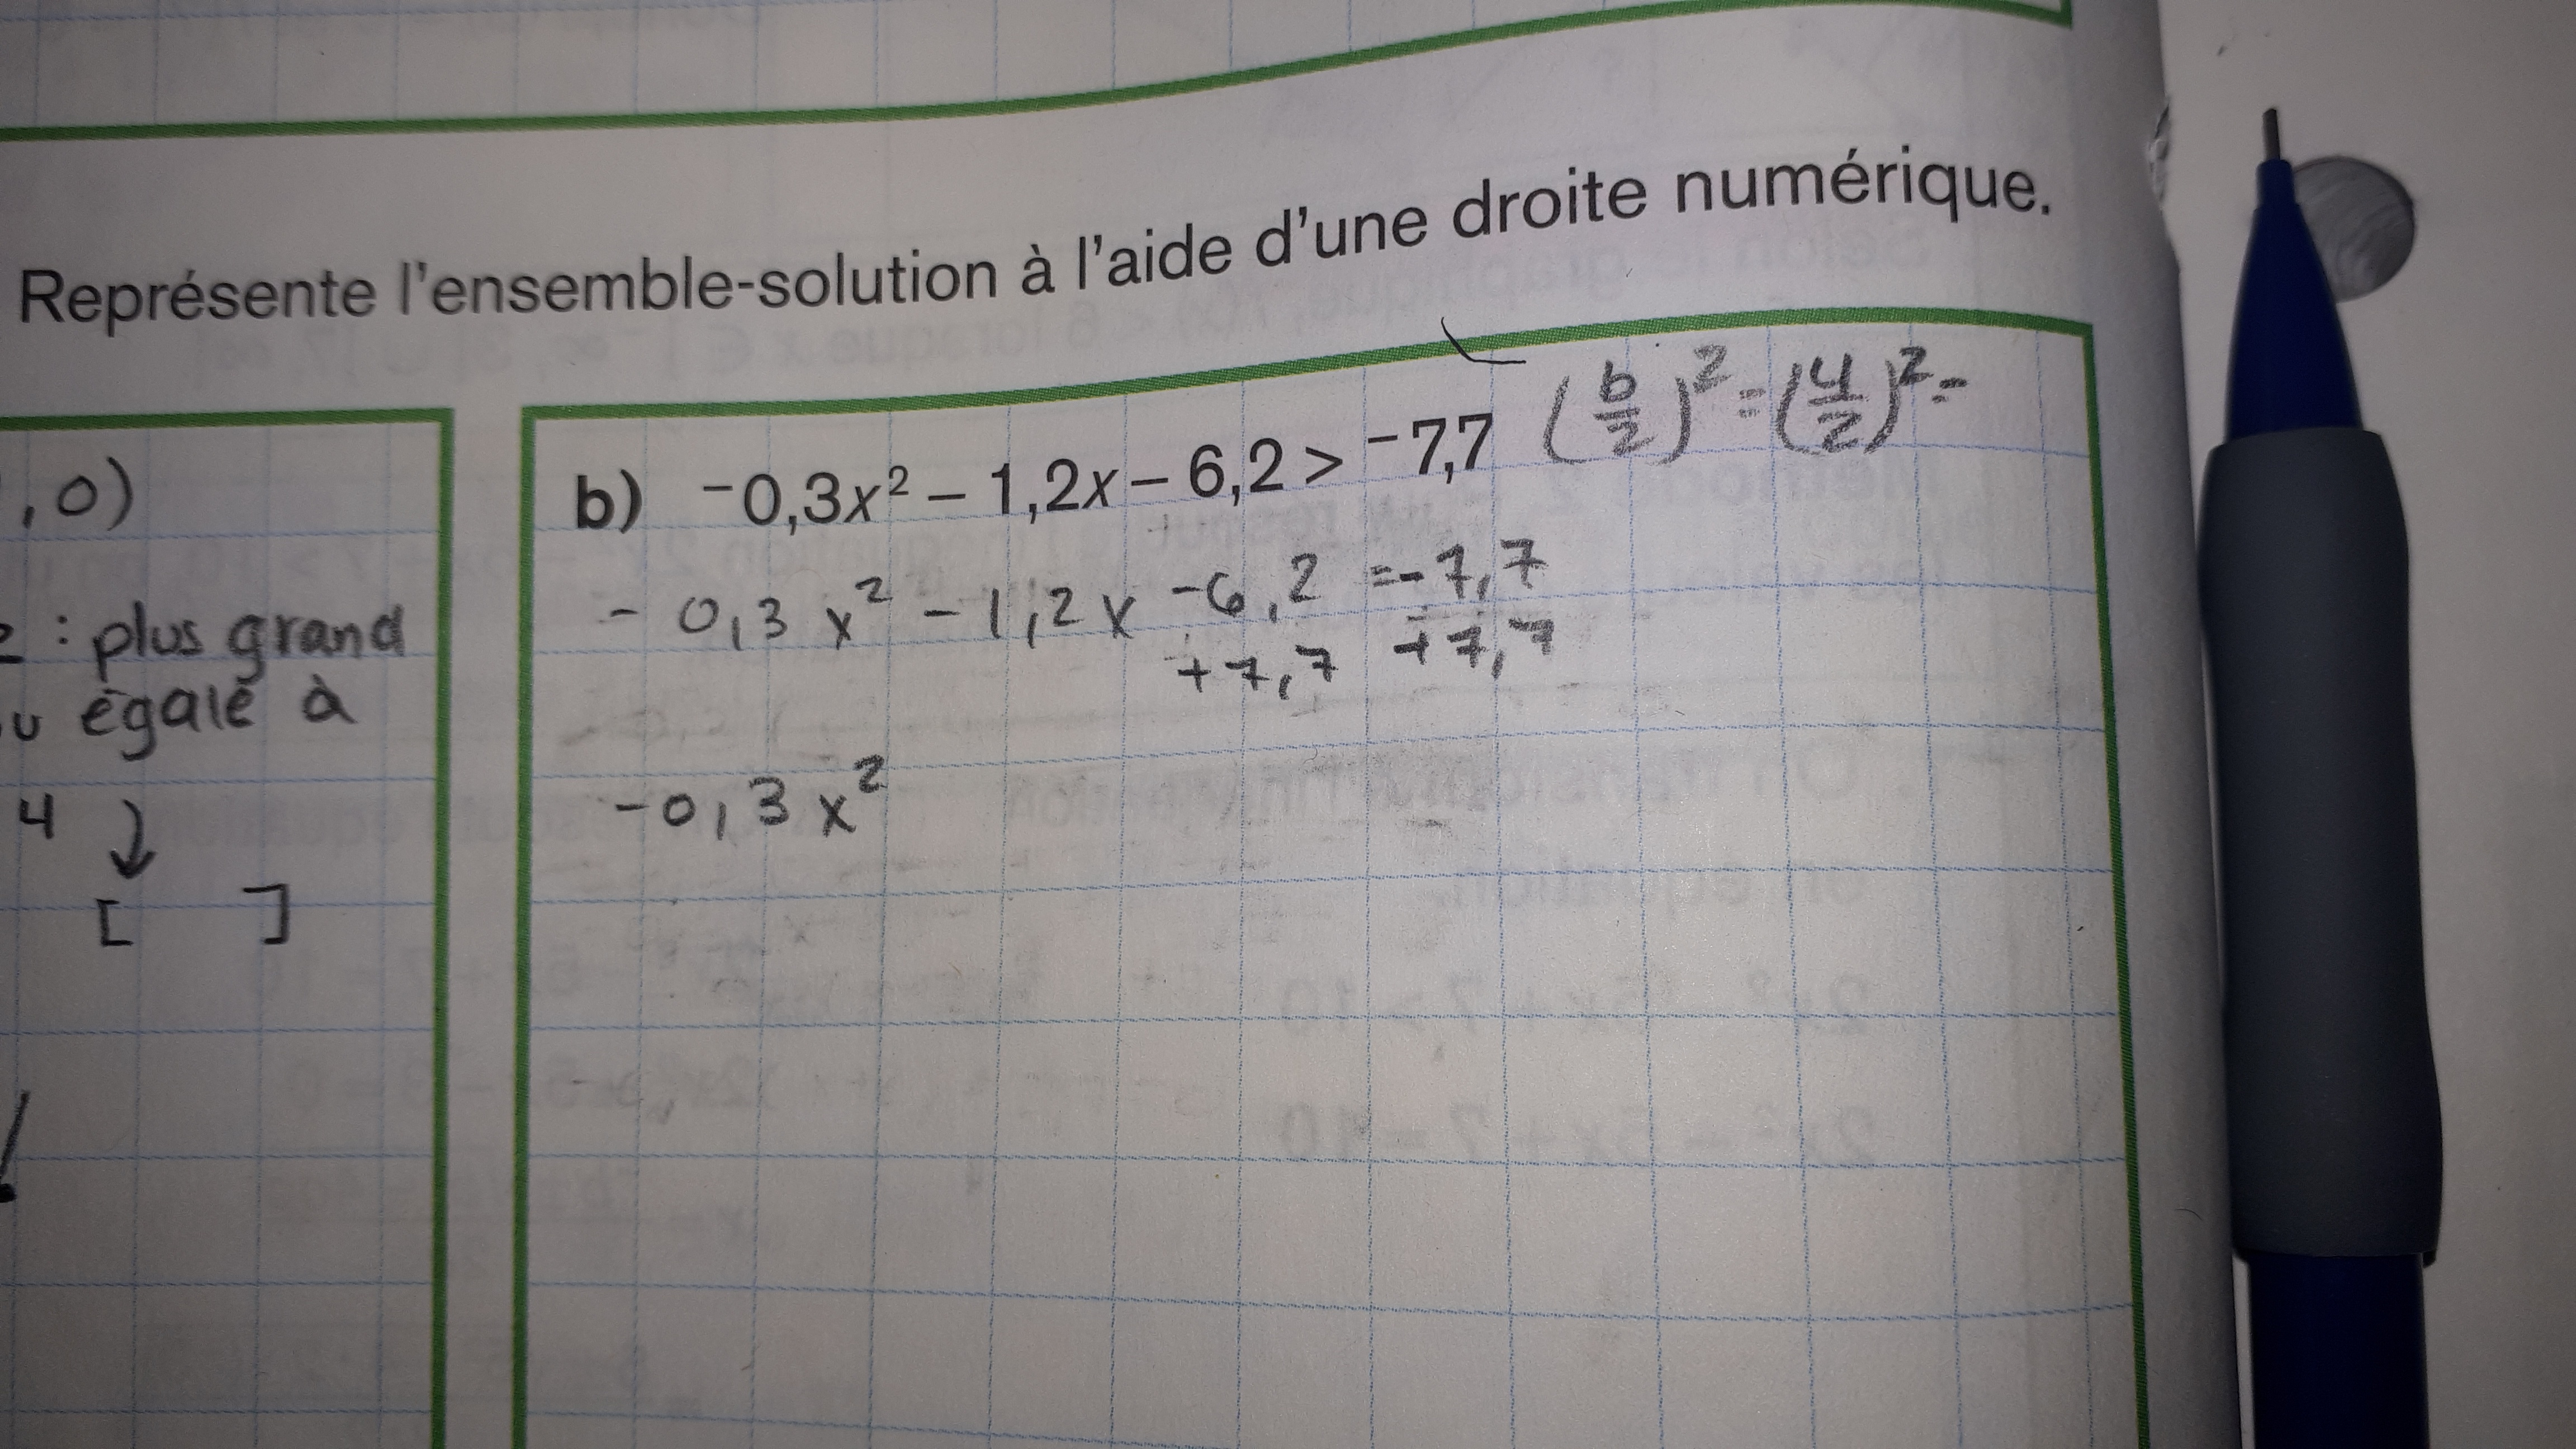 Représente l'ensemble-solution à l'aide d'une droite numérique.
,0)
: plus grand
égale à
4
[ ]
b) ⁻0,3x² – 1,2x – 6,2 > ⁻7,7 (b/2)² = (4/2)² =
- 0,3 x² - 1,2 x - 6,2 = - 7,7
+ 7,7 + 7,7
- 0,3 x²